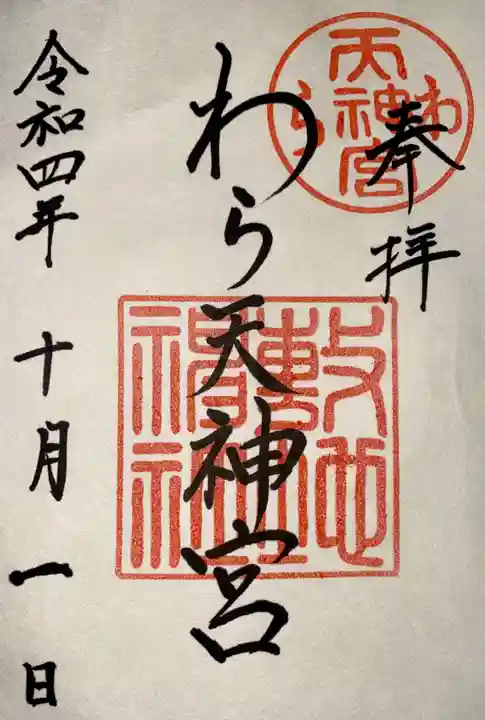 奉拝
わら天神宮
令和四年 十月 一日
わら天神宮
敷地神社